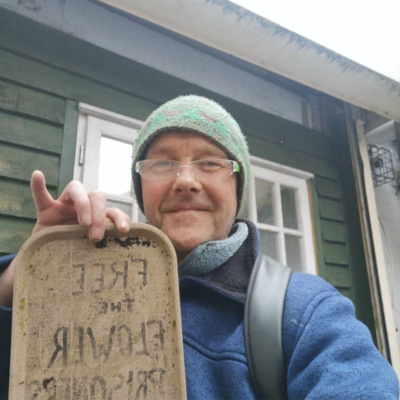 FREE
THE
FLOWER
PRISONERS